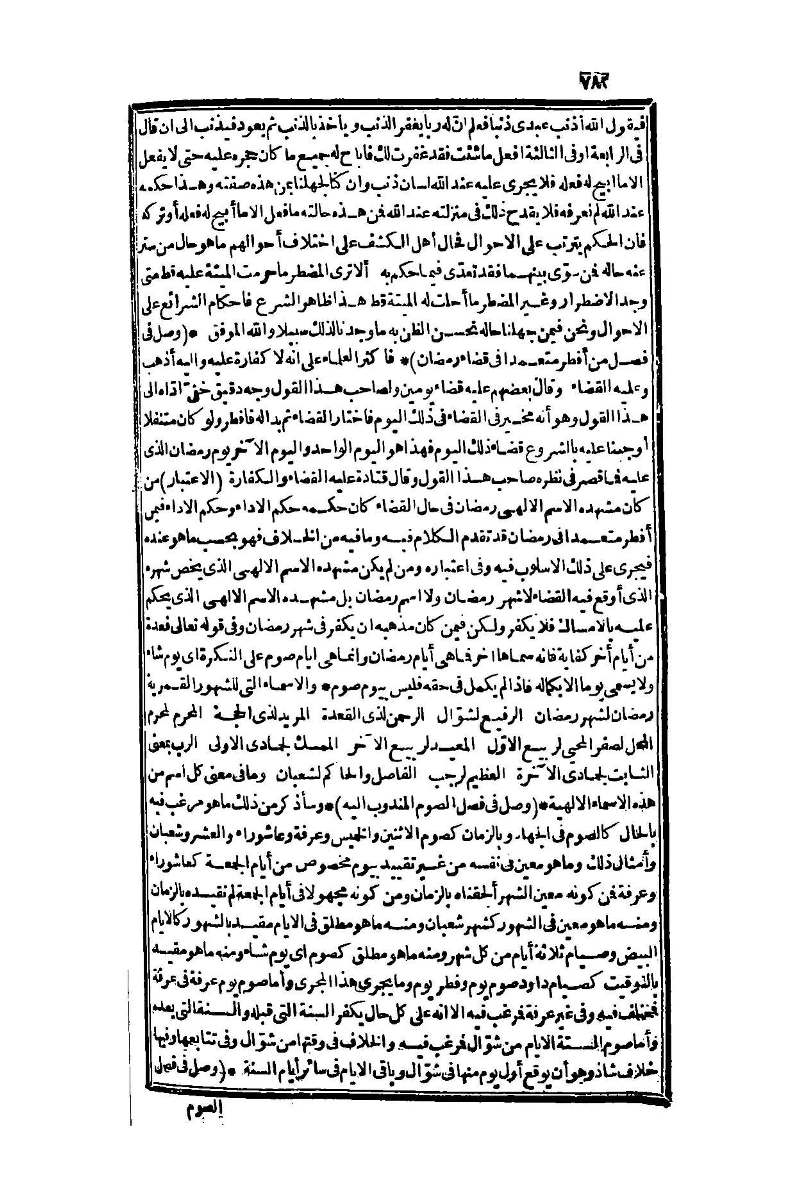 ٧٨٢
فيقول الله أذنب عبدى ذنبا فعلم ان له ربا يغفر الذنب ويأخذ بالذنب ثم يعود فيذنب الى ان قال
فى الرابعة أو فى الثالثة افعل ما شئت فقد غفرت لك فاباح له جميع ما كان حجره عليه حتى لا يفعل
الا ما ابيح له فعله فلا يجرى عليه عند الله لسان ذنب وان كنا لجهلنا بمن هذه صفته وهذا حكمه
عند الله لم نعرفه فلا يقدح ذلك فى منزلته عند الله فمن هذه حالته ما فعل الا ما أبيح له فعله أو تركه
فان الحكم يترتب على الاحوال فحال أهل الكشف على اختلاف أحوالهم ما هو حال من ستر
عنه حاله فمن سوّى بينهما فقد تعدّى فيما حكم به ألا ترى المضطر ما حرمت الميتة عليه قط متى
وجد الاضطرار وغير المضطر ما أحلت له الميتة قط هذا ظاهر الشرع فاحكام الشرائع على
الاحوال ونحن فيمن جهلنا حاله نحسن الظن به ما وجدنا لذلك سبيلا والله الموفق *(وصل فى
فصل من أفطر متعمدا فى قضاء رمضان)* فاكثر العلماء على انه لا كفارة عليه واليه أذهب
وعليه القضاء وقال بعضهم عليه قضاء يومين ولصاحب هذا القول وجه دقيق خفىّ ادّاه الى
هذا القول وهو أنه مخير فى القضاء فى ذلك اليوم فاختار القضاء ثم بدا له فافطر ولو كان متنفلا
أوجبنا عليه بالشروع قضاء ذلك اليوم فهذا هو اليوم الواحد واليوم الآخر يوم رمضان الذى
عليه فما قصر فى نظره صاحب هذا القول وقال قتادة عليه القضاء والكفارة (الاعتبار) من
كان مشهده الاسم الالهى رمضان فى حال القضاء كان حكمه حكم الاداء وحكم الاداء فيمن
أفطر متعمدا فى رمضان قد تقدم الكلام فيه وما فيه من الخلاف فهو بحسب ما هو عنده
فيجرى على ذلك الاسلوب فيه وفى اعتباره ومن لم يكن مشهده الاسم الالهى الذى يخص شهره
الذى أوقع فيه القضاء لا شهر رمضان ولا اسم رمضان بل مشهده الاسم الالهى الذى يحكم
عليه بالامساك فلا يكفر ولكن فيمن كان مذهبه ان يكفر فى شهر رمضان وفى قوله تعالى فعدة
من أيام أخر كفاية فانه سماها اخر فما هى أيام رمضان وانما هى ايام صوم على النكرة اى يوم شاء
ولا يسمى يوما الا بكماله فاذا لم يكمل فى حقه فليس بيوم صوم* والاسماء التى للشهور القمرية
رمضان لشهر رمضان الرفيع لشوال الرحمن لذى القعدة المريد لذى الحجة المحرم لمحرم
المحل لصفر المحيى لربيع الاوّل المعيد لربيع الآخر الممسك لجمادى الاولى الرب بمعنى
الثابت لجمادى الآخرة العظيم لرجب الفاصل والحاكم لشعبان وما فى معنى كل اسم من
هذه الاسماء الالهية *(وصل فى فصل الصوم المندوب اليه)* وسأذكر من ذلك ما هو مرغب فيه
بالحال كالصوم فى الجهاد وبالزمان كصوم الاثنين والخميس وعرفة وعاشوراء والعشر وشعبان
وأمثال ذلك وما هو معين فى نفسه من غير تقييد بيوم مخصوص من أيام الجمعة كعاشوراء
وعرفة فمن كونه معين الشهر ألحقناه بالزمان ومن كونه مجهولا فى أيام الجمعة لم نقيده بالزمان
ومنه ما هو معين فى الشهور كشهر شعبان ومنه ما هو مطلق فى الايام مقيد بالشهور كالايام
البيض وصيام ثلاثة أيام من كل شهر ومنه ما هو مطلق كصوم اى يوم شاء ومنه ما هو مقيد
بالتوقيت كصيام داود صوم يوم وفطر يوم وما يجرى هذا المجرى وأما صوم يوم عرفة فى عرفة
فمختلف فيه وفى غير عرفة فمرغب فيه الا انه على كل حال يكفر السنة التى قبله والسنة التى بعده
وأما صوم الستة الايام من شوّال فمرغب فيه والخلاف فى وقتها من شوّال وفى تتابعها وفيها
خلاف شاذ وهو أن يوقع أول يوم منها فى شوّال وباقى الايام فى سائر أيام السنة *(وصل فى فصل
الصوم